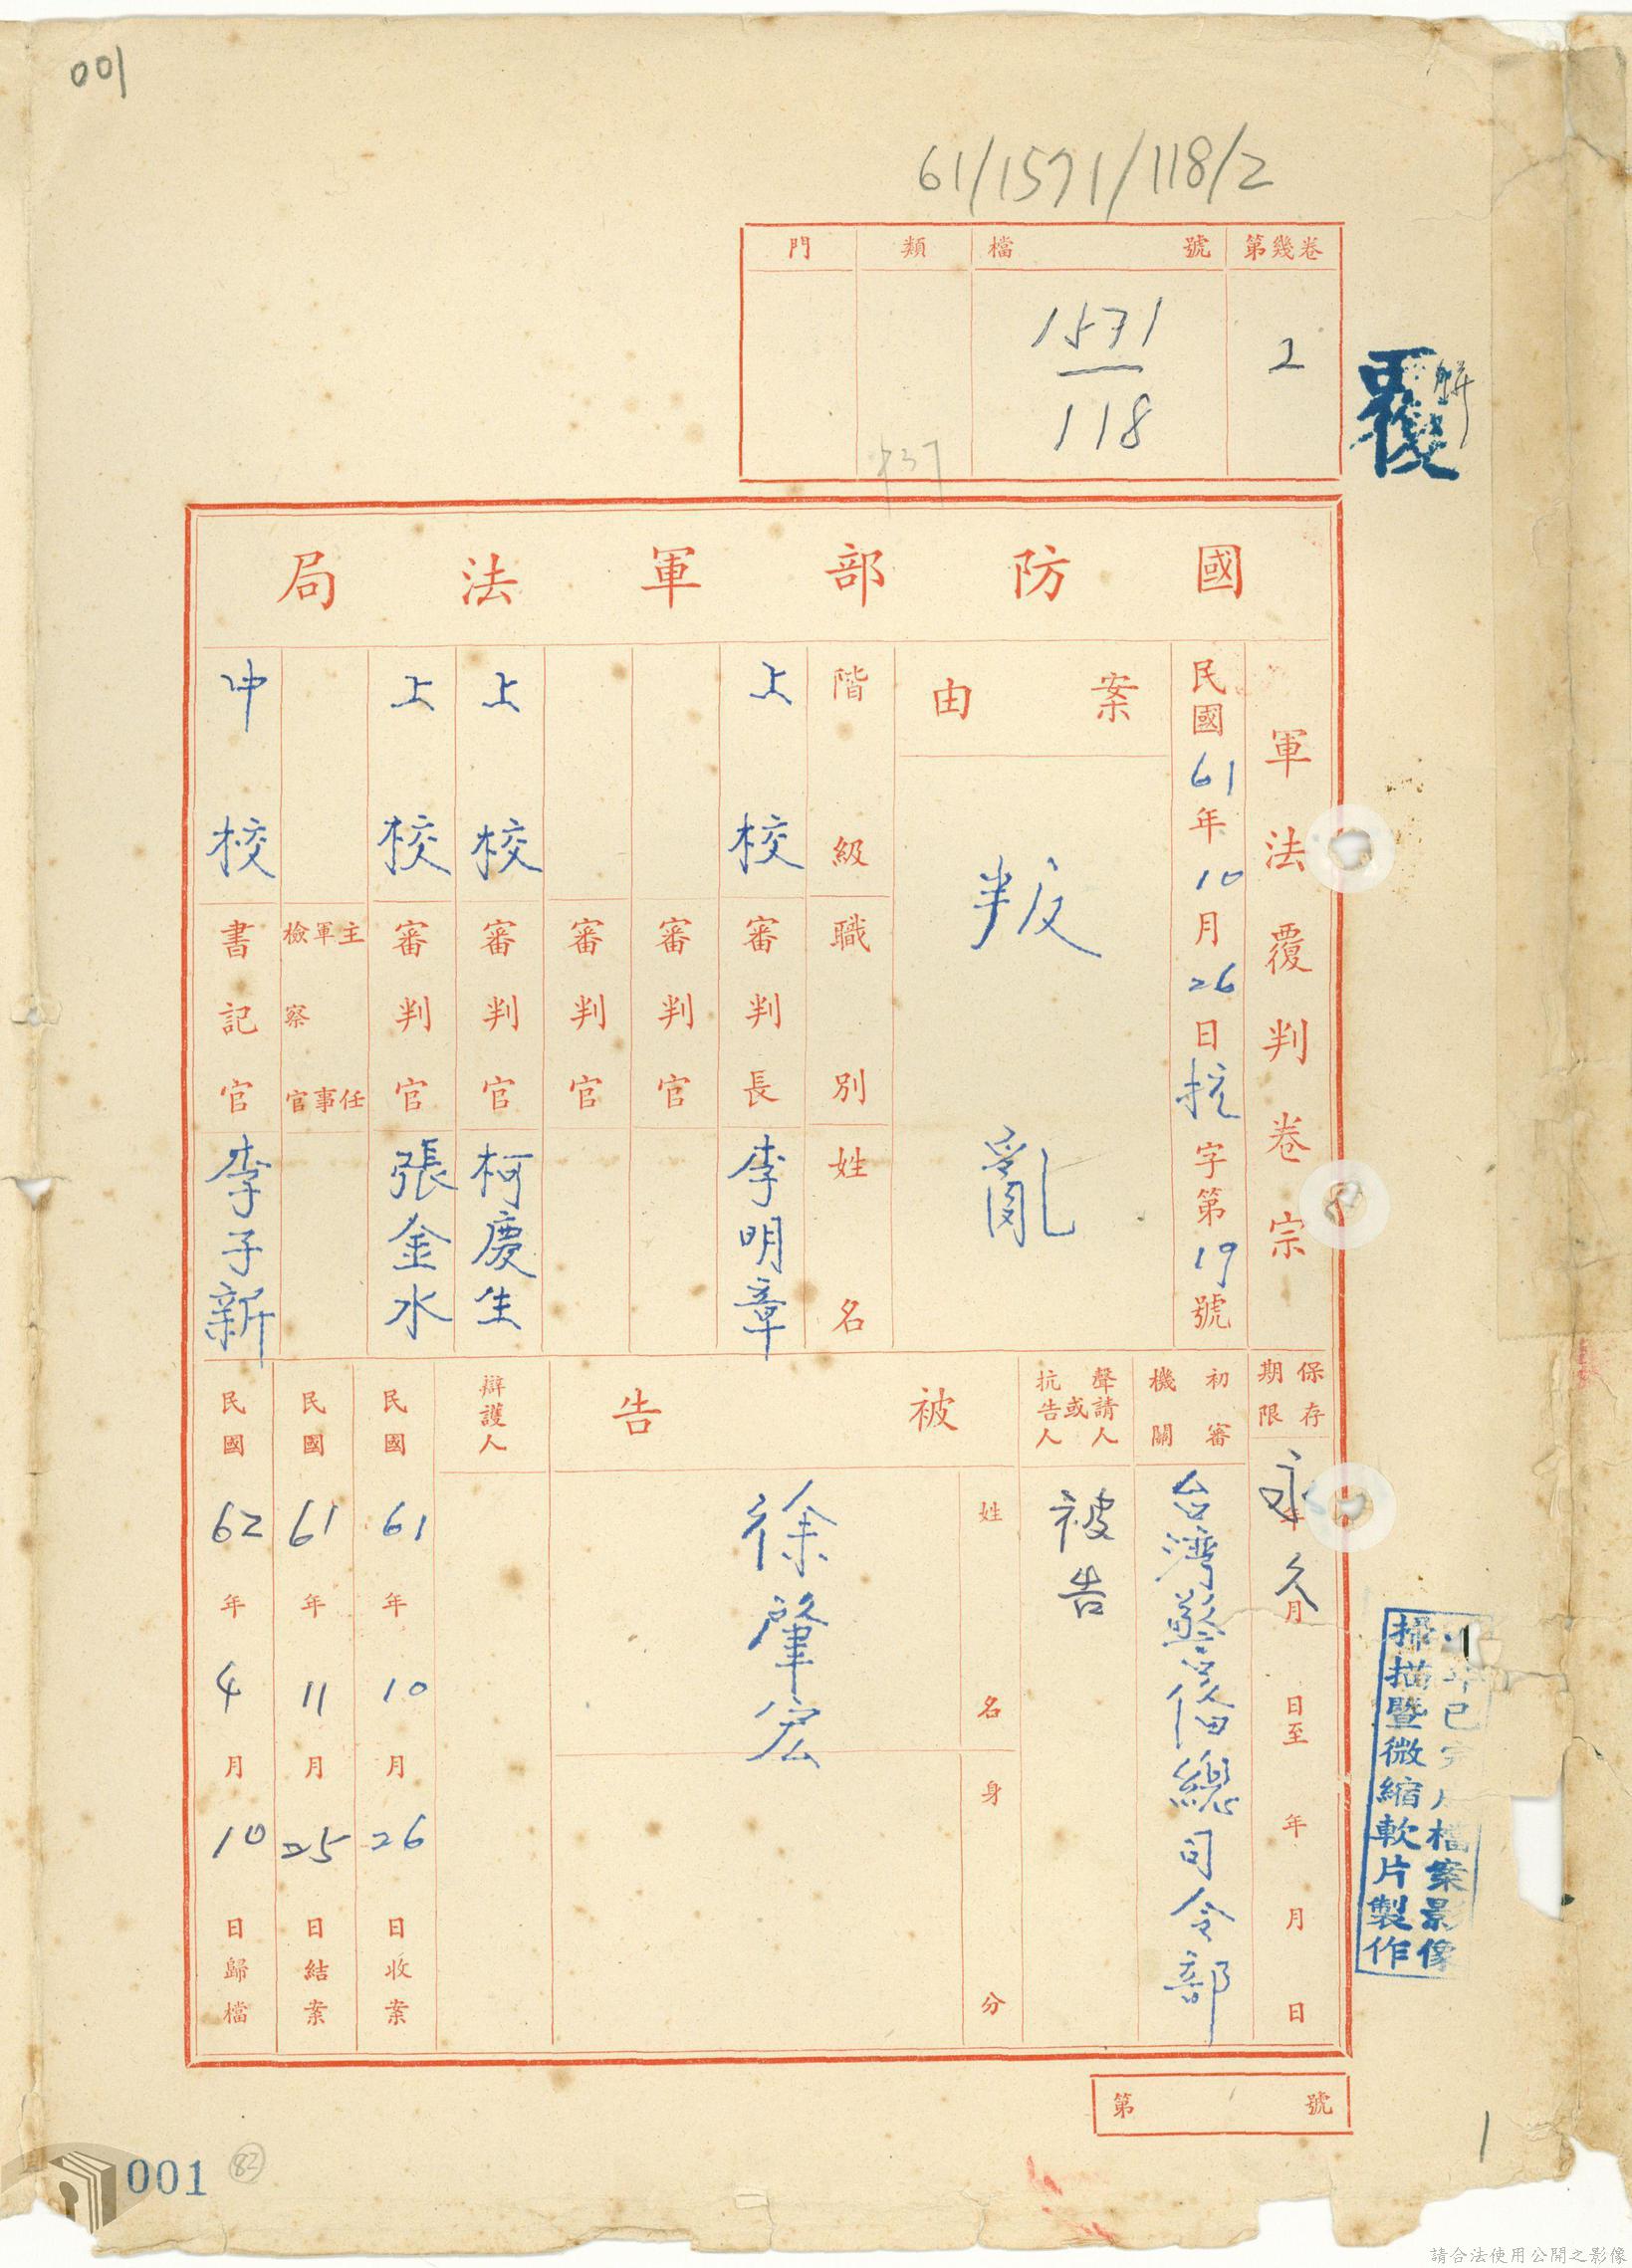 001
61/1571/118/2
第幾卷
2
檔號
1571
118
類
門
覆
國防部軍法局
軍法覆判卷宗
民國61年10月26日抗字第19號
案由
叛亂
階級 職別 姓名
上校 審判長 李明章
審判官
審判官
上校 審判官 柯慶生
上校 審判官 張金水
主任軍事檢察官
中校 書記官 李子新
保存期限
永久
年月日至年月日
初審機關
台灣警俻總司令部
聲請人或抗告人
被告
被告
姓名
徐肇宏
身分
辯護人
民國61年10月26日收案
民國61年11月25日結案
民國62年4月10日歸檔
檔案影像
掃描暨微縮軟片製作
第號
1
001
82
請合法使用公開之影像